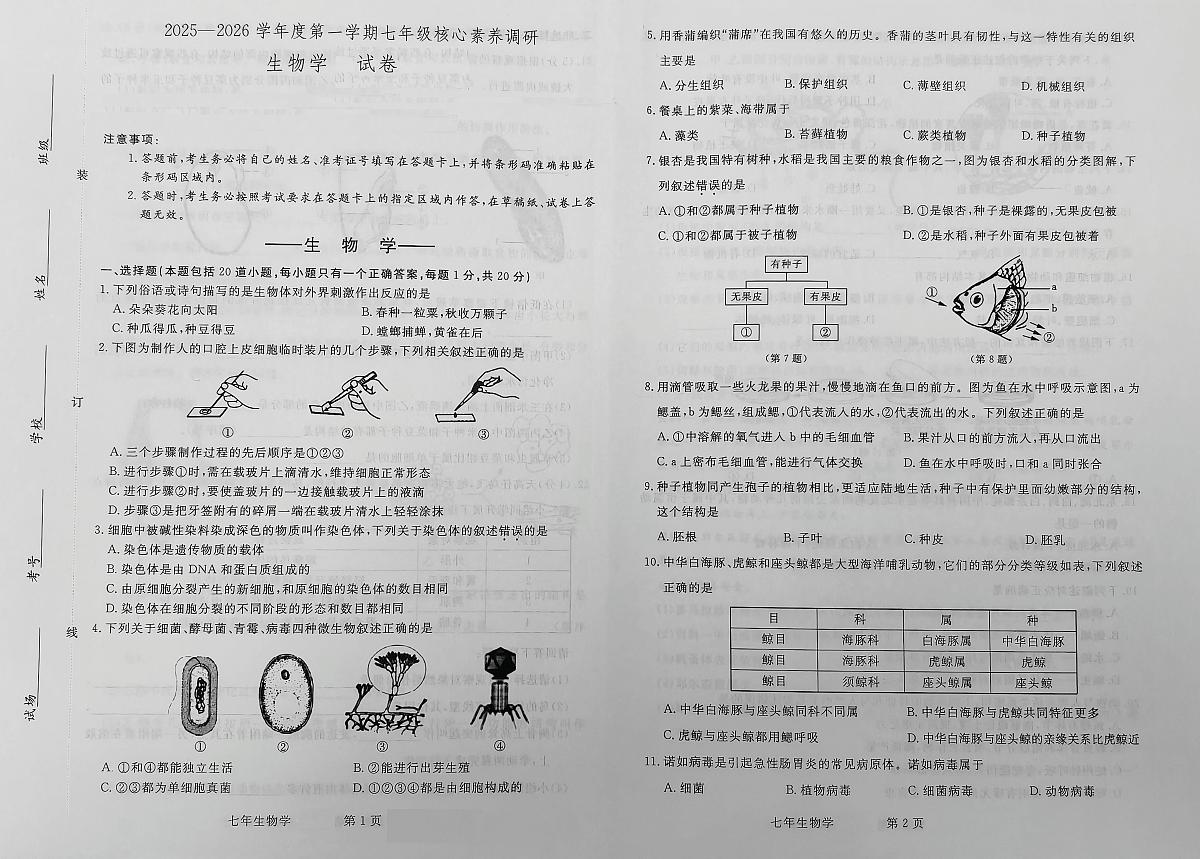 2025—2026学年度第一学期七年级核心素养调研
生物学 试卷
班级
姓名
学校
考号
试场
装
订
线
注意事项:
1. 答题前,考生务必将自己的姓名、准考证号填写在答题卡上,并将条形码准确粘贴在
条形码区域内。
2. 答题时,考生务必按照考试要求在答题卡上的指定区域内作答,在草稿纸、试卷上答
题无效。
——生 物 学——
一、选择题(本题包括20道小题,每小题只有一个正确答案,每题1分,共20分)
1. 下列俗语或诗句描写的是生物体对外界刺激作出反应的是
A. 朵朵葵花向太阳 B. 春种一粒粟,秋收万颗子
C. 种瓜得瓜,种豆得豆 D. 螳螂捕蝉,黄雀在后
2. 下图为制作人的口腔上皮细胞临时装片的几个步骤,下列相关叙述正确的是
① ② ③
A. 三个步骤制作过程的先后顺序是①②③
B. 进行步骤①时,需在载玻片上滴清水,维持细胞正常形态
C. 进行步骤②时,要使盖玻片的一边接触载玻片上的液滴
D. 步骤③是把牙签附有的碎屑一端在载玻片清水上轻轻涂抹
3. 细胞中被碱性染料染成深色的物质叫作染色体,下列关于染色体的叙述错误的是
A. 染色体是遗传物质的载体
B. 染色体是由DNA和蛋白质组成的
C. 由原细胞分裂产生的新细胞,和原细胞的染色体的数目相同
D. 染色体在细胞分裂的不同阶段的形态和数目都相同
4. 下列关于细菌、酵母菌、青霉、病毒四种微生物叙述正确的是
① ② ③ ④
A. ①和④都能独立生活 B. ②能进行出芽生殖
C. ②③都为单细胞真菌 D. ①②③④都是由细胞构成的
七年生物学 第1页
5. 用香蒲编织“蒲席”在我国有悠久的历史。香蒲的茎叶具有韧性,与这一特性有关的组织
主要是
A. 分生组织 B. 保护组织 C. 薄壁组织 D. 机械组织
6. 餐桌上的紫菜、海带属于
A. 藻类 B. 苔藓植物 C. 蕨类植物 D. 种子植物
7. 银杏是我国特有树种,水稻是我国主要的粮食作物之一,图为银杏和水稻的分类图解,下
列叙述错误的是
A. ①和②都属于种子植物 B. ①是银杏,种子是裸露的,无果皮包被
C. ①和②都属于被子植物 D. ②是水稻,种子外面有果皮包被着
有种子
无果皮 有果皮
① ②
(第7题)
① a
b
②
(第8题)
8. 用滴管吸取一些火龙果的果汁,慢慢地滴在鱼口的前方。图为鱼在水中呼吸示意图,a为
鳃盖,b为鳃丝,组成鳃,①代表流入的水,②代表流出的水。下列叙述正确的是
A. ①中溶解的氧气进入b中的毛细血管 B. 果汁从口的前方流入,再从口流出
C. a上密布毛细血管,能进行气体交换 D. 鱼在水中呼吸时,口和a同时张合
9. 种子植物同产生孢子的植物相比,更适应陆地生活,种子中有保护里面幼嫩部分的结构,
这个结构是
A. 胚根 B. 子叶 C. 种皮 D. 胚乳
10. 中华白海豚、虎鲸和座头鲸都是大型海洋哺乳动物,它们的部分分类等级如表,下列叙述
正确的是
目 科 属 种
鲸目 海豚科 白海豚属 中华白海豚
鲸目 海豚科 虎鲸属 虎鲸
鲸目 须鲸科 座头鲸属 座头鲸
A. 中华白海豚与座头鲸同科不同属 B. 中华白海豚与虎鲸共同特征更多
C. 虎鲸与座头鲸都用鳃呼吸 D. 中华白海豚与座头鲸的亲缘关系比虎鲸近
11. 诺如病毒是引起急性肠胃炎的常见病原体。诺如病毒属于
A. 细菌 B. 植物病毒 C. 细菌病毒 D. 动物病毒
七年生物学 第2页